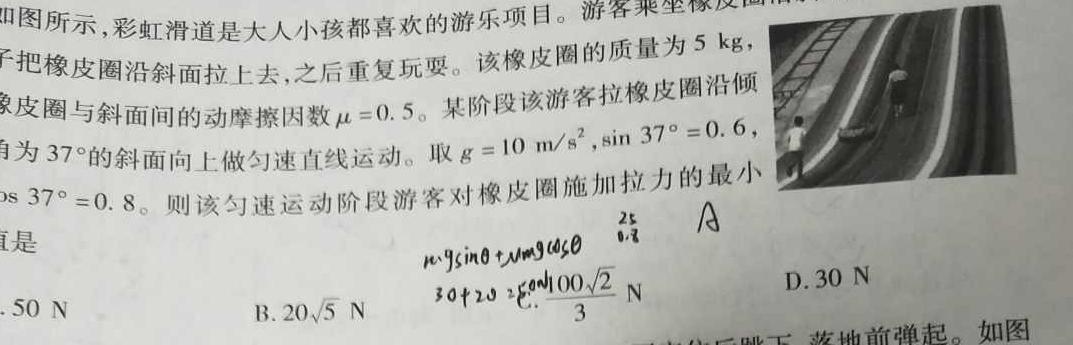 如图所示,彩虹滑道是大人小孩都喜欢的游乐项目。游客乘坐橡皮
子把橡皮圈沿斜面拉上去,之后重复玩耍。该橡皮圈的质量为5 kg,
橡皮圈与斜面间的动摩擦因数μ=0.5。某阶段该游客拉橡皮圈沿倾
角为37°的斜面向上做匀速直线运动。取g=10 m/s²,sin 37°=0.6,
os 37°=0.8。则该匀速运动阶段游客对橡皮圈施加拉力的最小
值是
25
0.8
A
mgsinθ+μmgcosθ
30+20=50N
. 50 N
B. 20√5 N
C. 100√2/3 N
D. 30 N
落地前弹起。如图